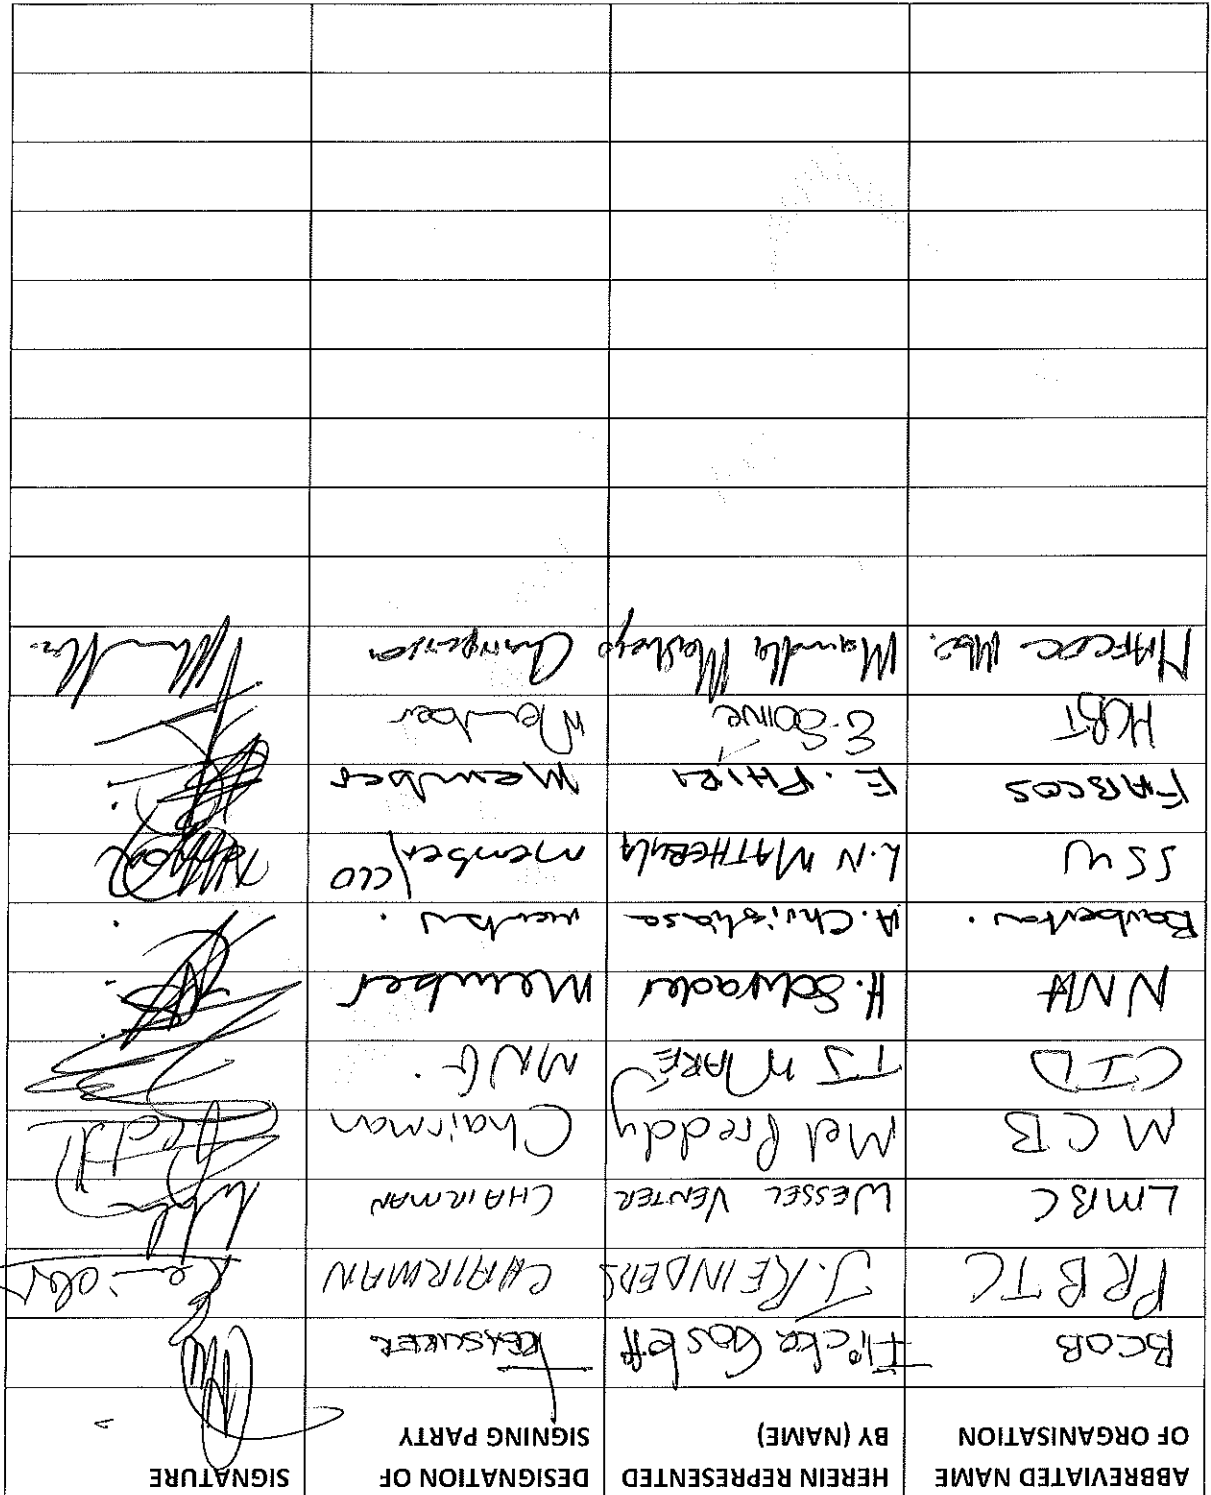 ABBREVIATED NAME OF ORGANISATION | HEREIN REPRESENTED BY (NAME) | DESIGNATION OF SIGNING PARTY | SIGNATURE
BCOB | TREASURER
PRBTC | J. REINDERS | CHAIRMAN
LMBC | WESSEL VENTER | CHAIRMAN
MCB | Mel Preddy | Chairman
CID | TJ MARE | MNG.
NNH | H. Schrader | Member
Barberton. | A. Christiase | member.
SSW | L.N MATHEBULA | member/CEO
FABCOS | E. PHIRI | Member
HCBT | Member
Mandla | Chairperson